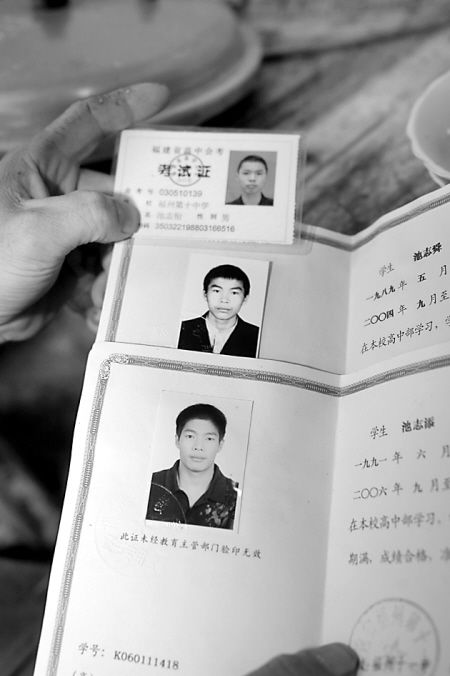 福建省高中会考
考试证
考号 030510139
校 福州第十中学
名 池志伦 性别 男
350322198803166516
学生 池志舜
一九八九年 五 月
二〇〇四年 九月至
在本校高中部学习，
学生 池志添
一九九一年 六 月
二〇〇六年 九月至
在本校高中部学习，
期满，成绩合格，准
此证未经教育主管部门验印无效
学号：K060111418